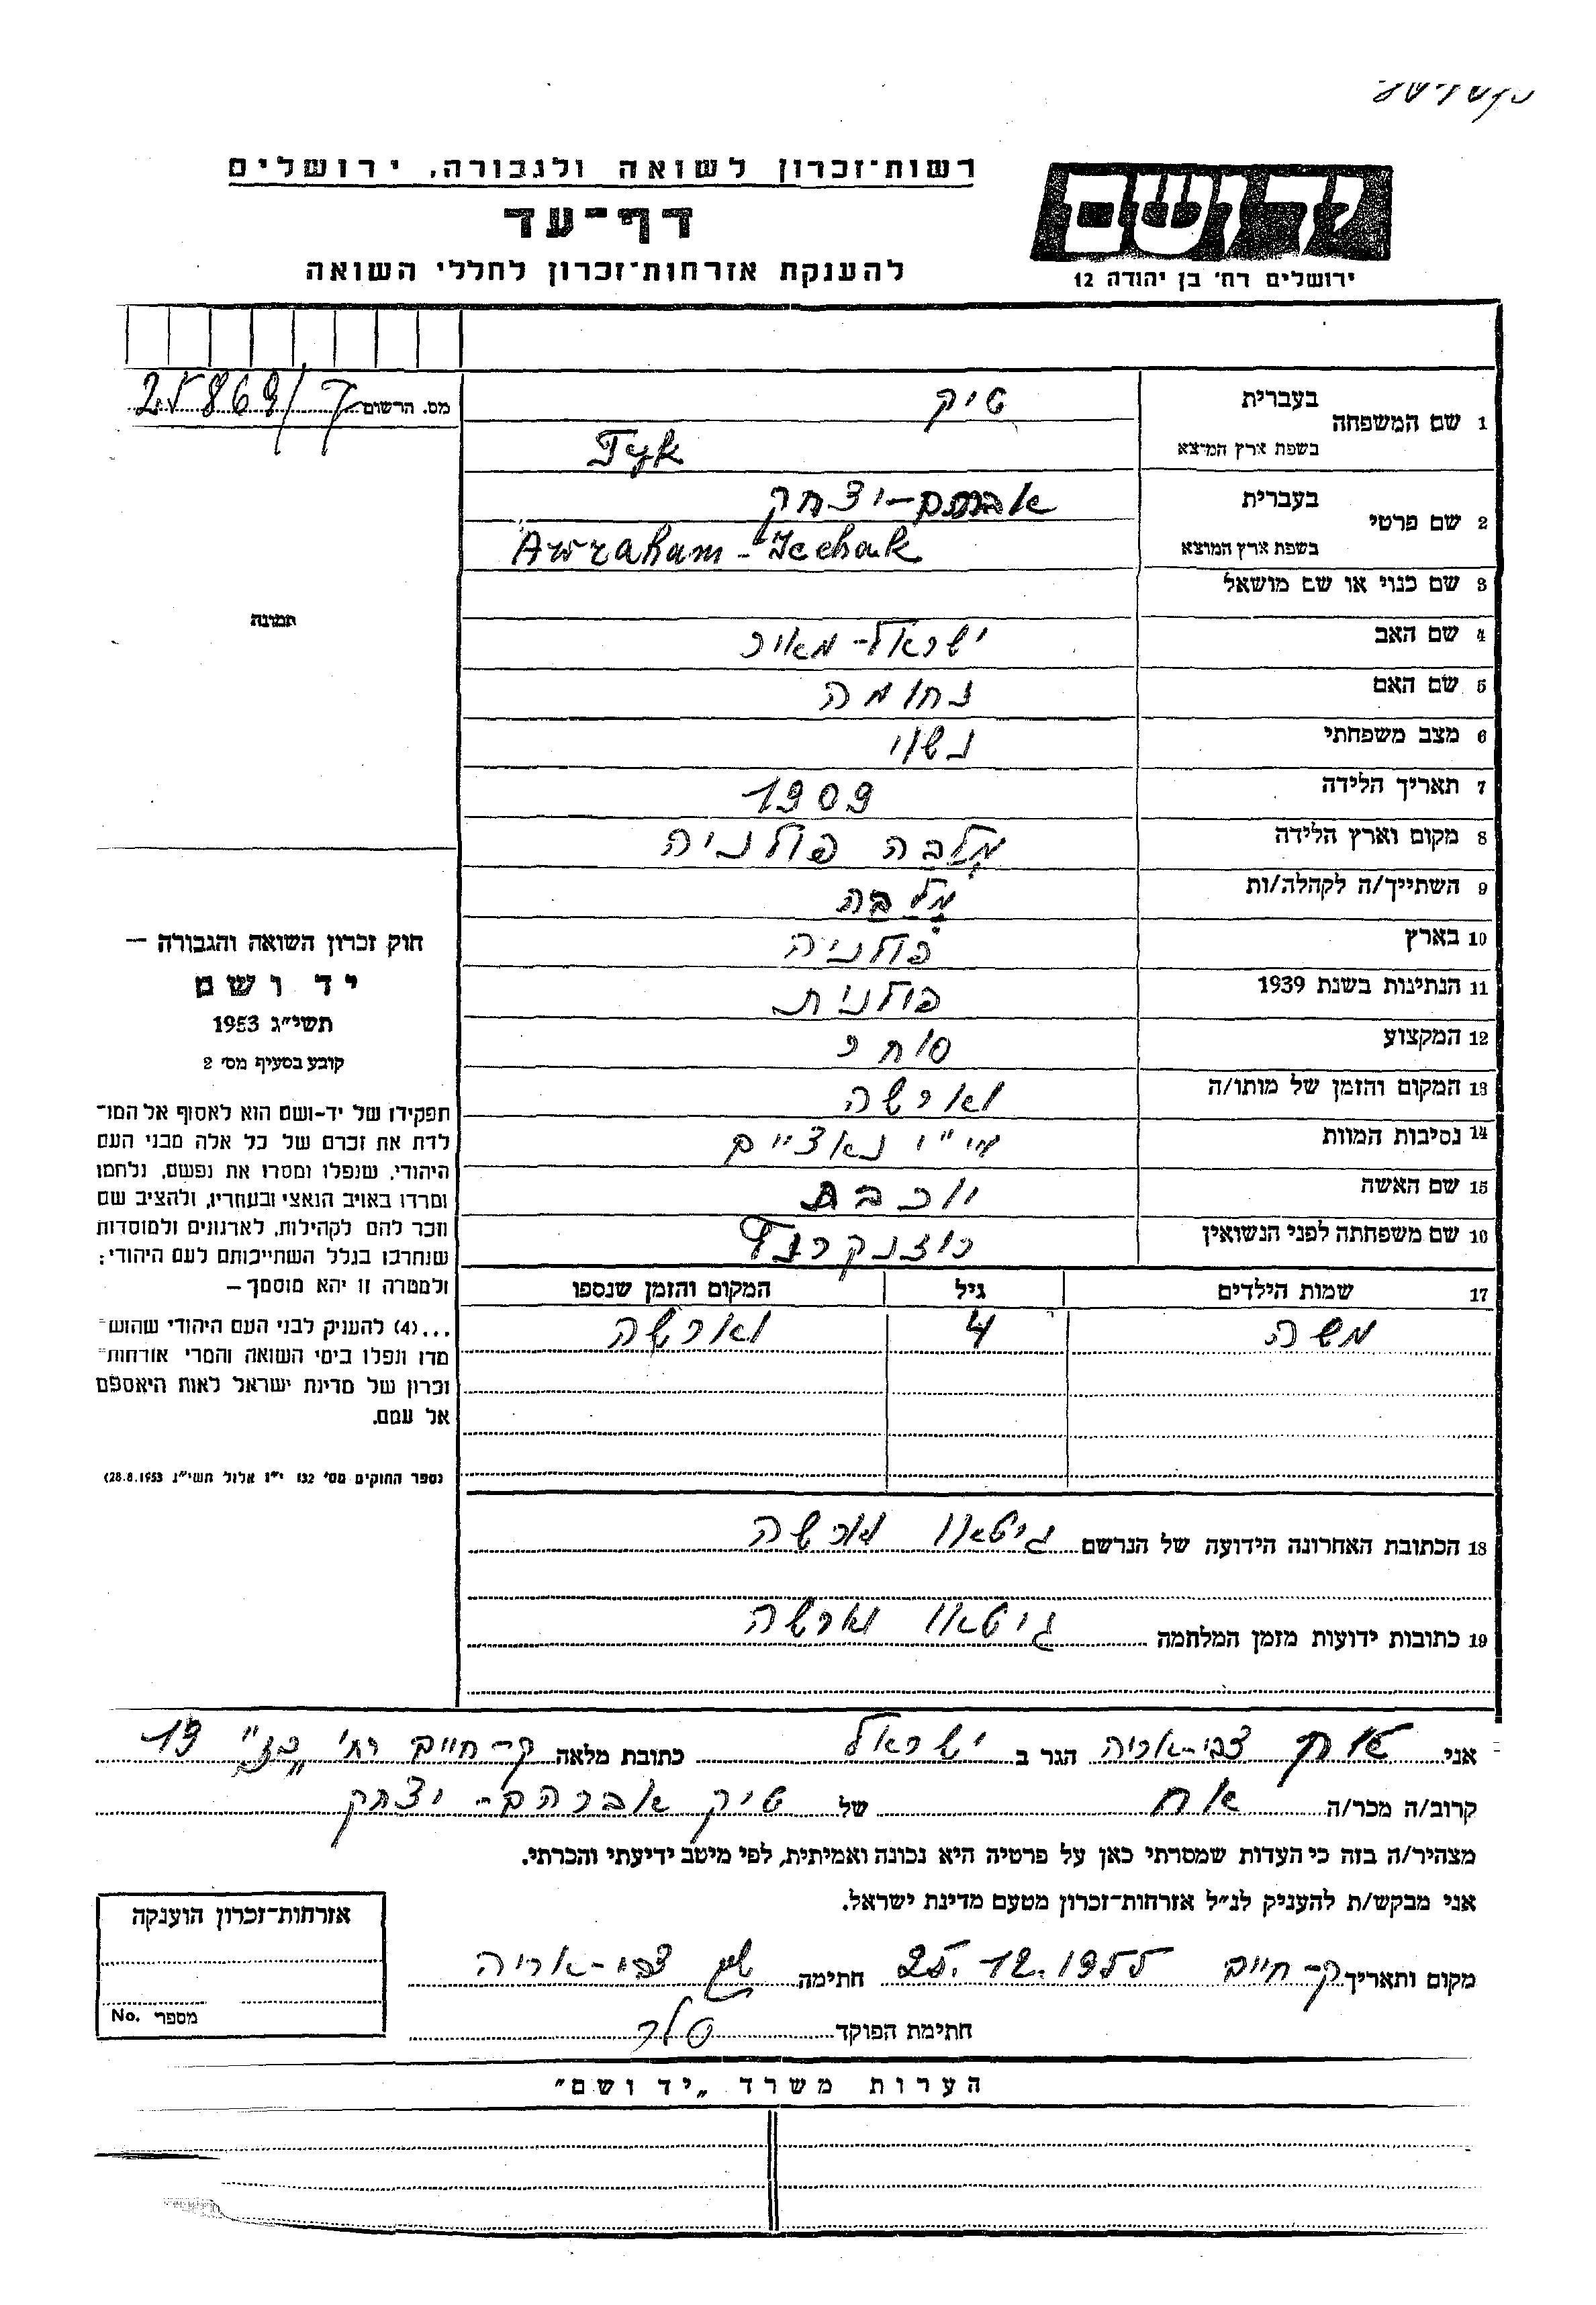 רשות־זכרון לשואה ולגבורה, ירושלים
דף־עד
להענקת אזרחות־זכרון לחללי השואה
יד ושם
ירושלים רח' בן יהודה 12
מס. הרשום 25869/ק
1 שם המשפחה
בעברית טיק
בשפת ארץ המוצא Tyk
2 שם פרטי
בעברית אברהם-יצחק
בשפת ארץ המוצא Awraham-Icchak
3 שם כנוי או שם מושאל
4 שם האב ישראל-מאיר
5 שם האם נחומה
6 מצב משפחתי נשוי
7 תאריך הלידה 1909
8 מקום וארץ הלידה מלבה פולניה
9 השתייך/ה לקהלה/ות מלבה
10 בארץ פולניה
11 הנתינות בשנת 1939 פולנית
12 המקצוע סוחר
13 המקום והזמן של מותו/ה וארשה
14 נסיבות המוות ע"י נאציים
15 שם האשה יוכבת
16 שם משפחתה לפני הנשואין
17 שמות הילדים גיל המקום והזמן שנספו
משה 4 וארשה
18 הכתובת האחרונה הידועה של הנרשם גיטאו וארשה
19 כתובות ידועות מזמן המלחמה גיטאו וארשה
תמונה
חוק זכרון השואה והגבורה —
יד ושם
תשי"ג 1953
קובע בסעיף מס' 2
תפקידו של יד-ושם הוא לאסוף אל המו־
לדת את זכרם של כל אלה מבני העם
היהודי, שנפלו ומסרו את נפשם, נלחמו
ומרדו באויב הנאצי ובעוזריו, ולהציב שם
וזכר להם לקהילות, לארגונים ולמוסדות
שנחרבו בגלל השתייכותם לעם היהודי;
ולמטרה זו יהא מוסמך —
...(4) להעניק לבני העם היהודי שהוש־
מדו ונפלו בימי השואה והמרי אזרחות־
זכרון של מדינת ישראל לאות היאספם
אל עמם.
(ספר החוקים מס' 132 י"ז אלול תשי"ג 28.8.1953)
אני צבי-אריה הגר ב ישראל כתובת מלאה ק-חיים רח' 19
קרוב/ה מכר/ה אח של טיק אברהם-יצחק
מצהיר/ה בזה כי העדות שמסרתי כאן על פרטיה היא נכונה ואמיתית, לפי מיטב ידיעתי והכרתי.
אני מבקש/ת להעניק לנ"ל אזרחות־זכרון מטעם מדינת ישראל.
מקום ותאריך ק-חיים 25.12.1955 חתימה צבי-אריה
חתימת הפוקד
אזרחות־זכרון הוענקה
מספר No.
הערות משרד „יד ושם"